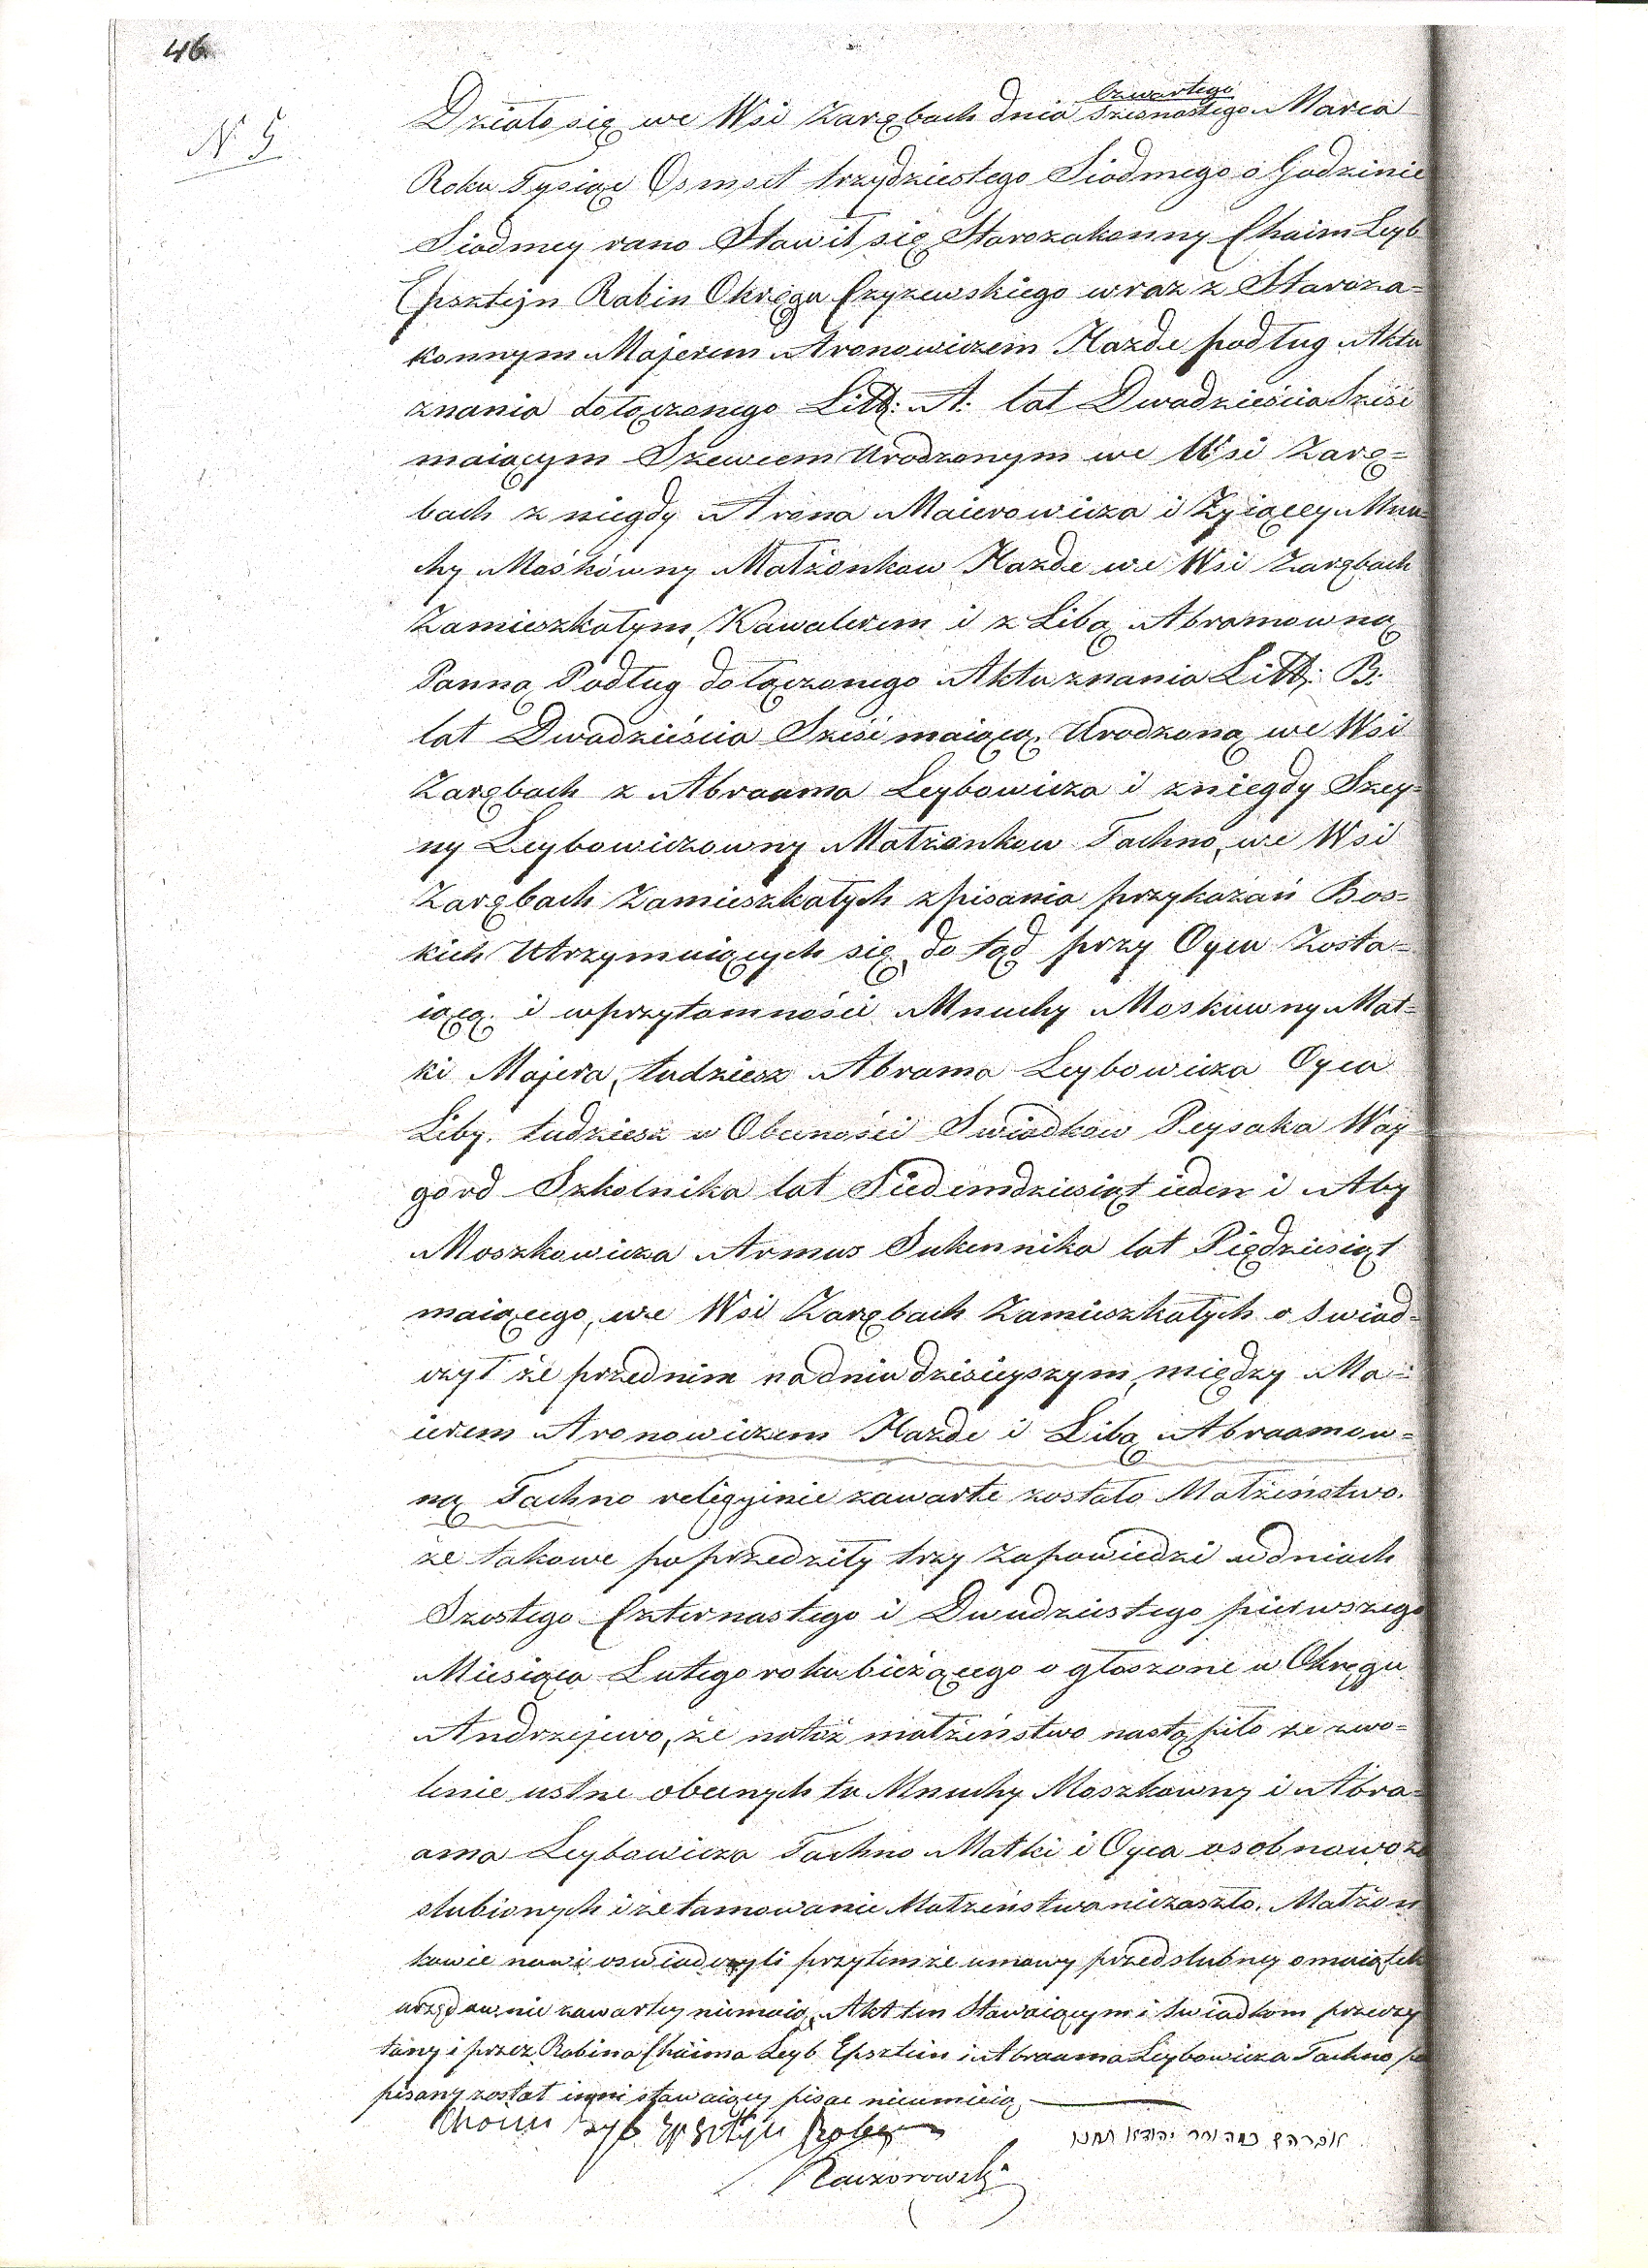 46
N 5
Czwartego
Działo się we Wsi Zarębach dnia Szesnastego Marca
Roku Tysiąc Osmset trzydziestego Siodmego o Godzinie
Siodmey rano Stawił się Starozakonny Chaim Leyb
Epsztijn Rabin Okręgu Czyzewskiego wraz z Staroza=
konnym Majerem Aronowiczem Hazde podług Aktu
znania dołączonego Litt: A: lat Dwadzieścia Sześć
maiącym Szewcem Urodzonym we Wsi Zarę=
bach z niegdy Arona Maierowicza i Zyiącey Mnu=
chy Mośkówny Małżonkow Hazde we Wsi Zarębach
Zamieszkałym, Kawalerem i z Libą Abramowną
Panną Podług dołączonego Aktu znania Litt: B.
lat Dwadzieścia Sześć maiącą. Urodzoną we Wsi
Zarębach z Abraama Leybowicza i z niegdy Szey=
ny Leybowiczowny Małżonkow Tachno, we Wsi
Zarębach Zamieszkałych z pisania przykazań Bos=
kich Utrzymuiących się, do tąd przy Oycu Zosta=
iącą. i w przytomności Mnuchy Moskuwny Mat=
ki Majera, tudziesz Abrama Leybowicza Oyca
Liby. tudziesz w Obecności Swiadkow Peysaka Way
gord Szkolnika lat Siedemdziesiąt ieden i Aby
Moszkowicza Armus Sukennika lat Piędziesiąt
maiącego, we Wsi Zarębach Zamieszkałych oswiad=
czył że przednim na dniu dzisieyszym, między Ma=
ierem Aronowiczem Hazde i Libą Abraamow=
ną Tachno religyinie zawarte zostało Małżeństwo.
że takowe poprzedziły trzy Zapowiedzi w dniach
Szostego Czternastego i Dwudziestego pierwszego
Miesiąca Lutego roku bieżącego ogłoszone w Okręgu
Andrzejewo, że natoż małżeństwo nastąpiło ze zwo=
lenie ustne obecnych tu Mnuchy Moszkowny i Abra=
ama Leybowicza Tachno Matki i Oyca osob nowo za
slubionych i że tamowanie Małżeństwa nie zaszło. Małżon
kowie nowi oswiadczyli przytem że umowy przedslubney o maiątek
urzędownie zawartey niemaią, Akt ten Stawaiącym i Swiadkom przeczy
tany i przez Rabina Chaima Leyb Epsztein i Abraama Leybowicza Tachno po
pisany został inni stawaiący pisac nieumieią
Chaim Leyb Epsztyn Rabin
אברהם במהורר יהודא תחנו
Kaczorowski